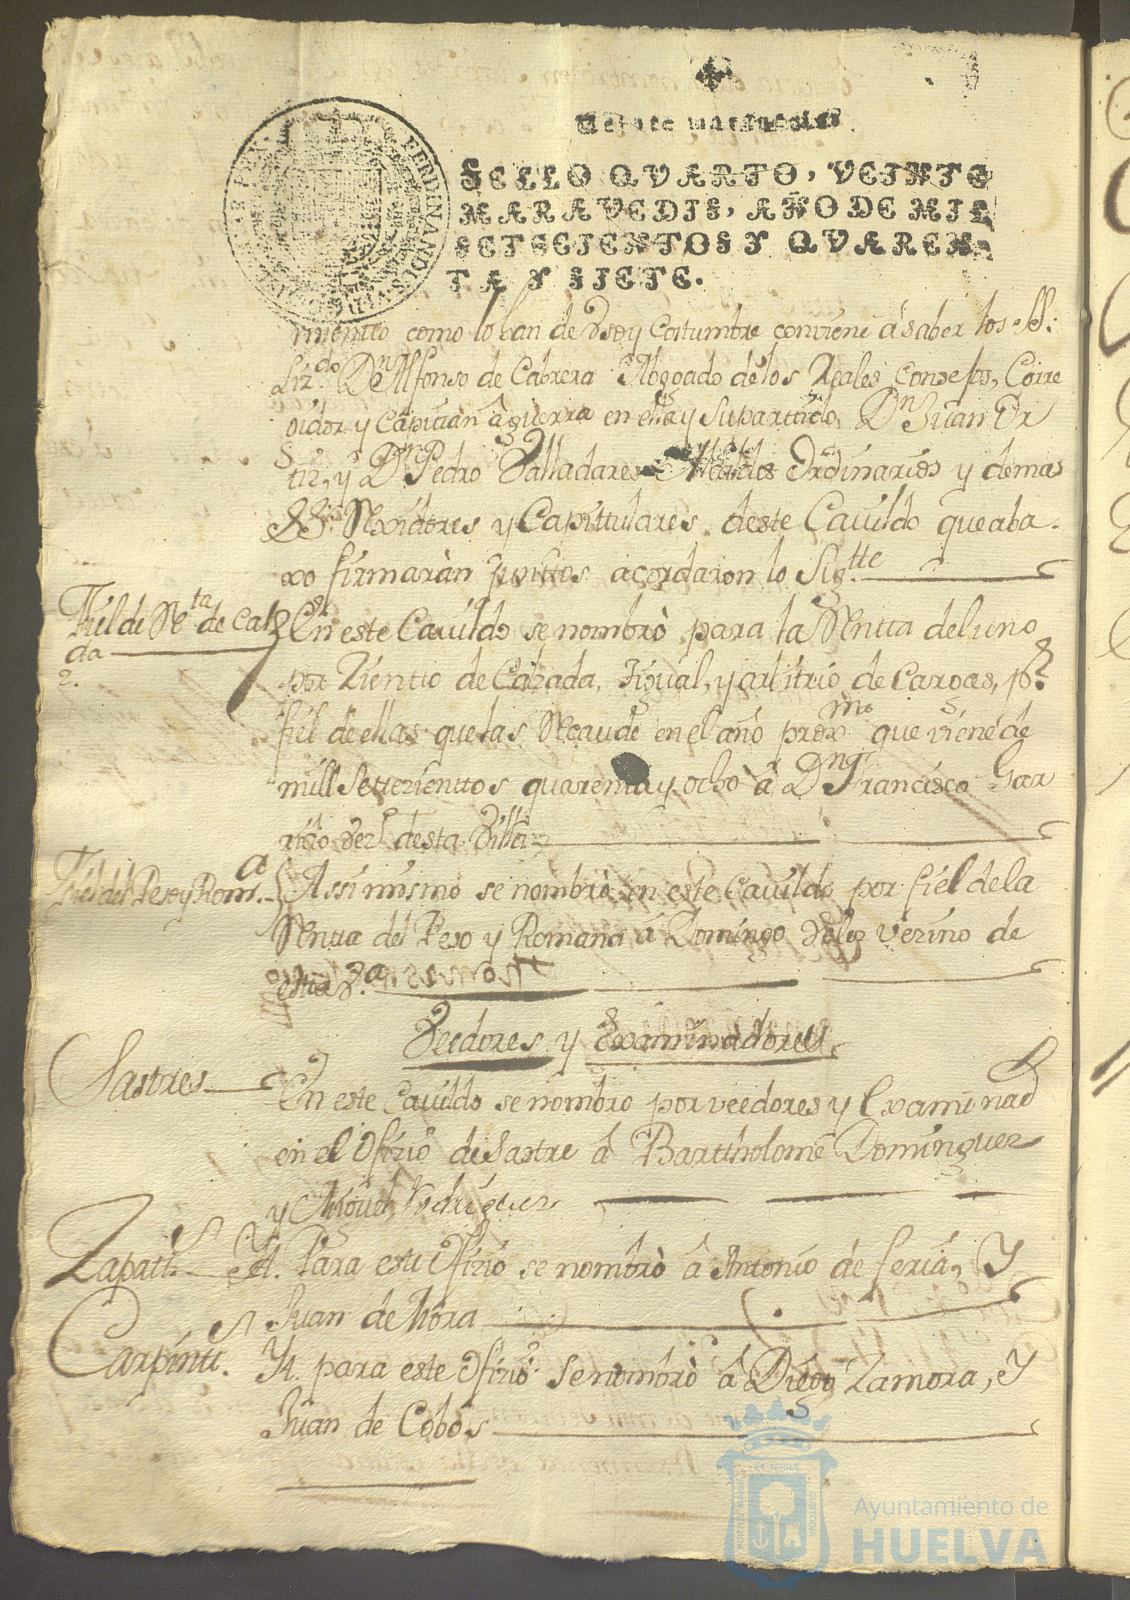 Veinte maravedis
SELLO QVARTO, VEINTE
MARAVEDIS, AÑO DE MIL
SETECIENTOS Y QVAREN-
TA Y SIETE.
FERDINANDUS VI
miento como lo han de Vso y Costumbre conviene â saber los SS.
Liz.do Dn Alfonso de Cabrera Abogado de los Reales Consejos, Corre
gidor y Capitan â guerra en ella y su partido, Dn Juan Or
tiz, y Dn Pedro Valladares Alcaldes Ordinarios y demas
SS.s Rexidores y Capittulares deste Cauildo que aba-
xo firmaràn Junttos acordaron lo Sig.tte
Fiel de R.ta de Calz
da
En este Cauildo se nombrò para la Rentta del uno
por Zientto de Calzada, Figual, y arlitrio de Cargas, p.r
fiel de ellas que las Recaude en el año prox.mo que viene de
mill Settezienttos quarenta y ocho â Dn Francisco Gar
rido Vez.o desta Villa
Fiel del Peso y Rom.a
Assimismo se nombrò en este Cauildo por fiel de la
Rentta del Peso y Romana â Domingo Velez vezino de
esta V.a
Veedores y Examinadores
Sastres
En este Cauildo se nombro por veedores y Examinad
en el Ofizio de Sastre â Barttholomê Dominguez
y Miguel Rodriguez
Zapatt.s
Yt. Para este Ofizio se nombrò â Antonio de feria, Y
Juan de Mora
Carpintt.s
Yt. para este Ofizio se nombrò â Diego Zamora, Y
Juan de Cobos
Ayuntamiento de
HUELVA